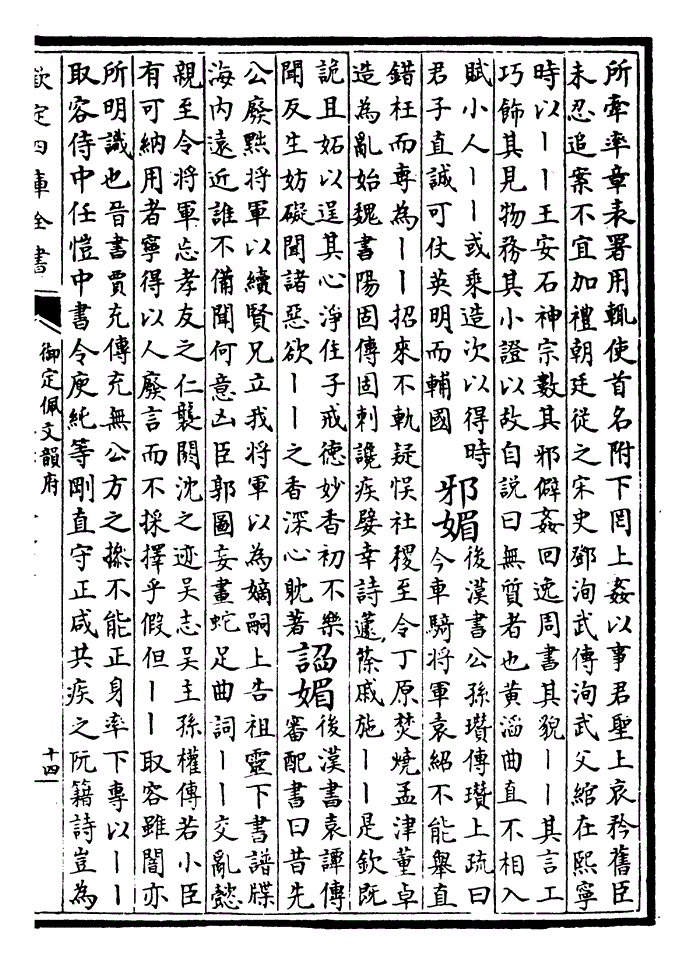 所牽率章表署用輒使首名附下罔上姦以事君聖上哀矜舊臣
未忍追案不宜加禮朝廷從之宋史鄧洵武傳洵武父綰在熙寧
時以丨丨王安石神宗數其邪僻姦回逸周書其貌丨丨其言工
巧飾其見物務其小證以故自説曰無質者也黄滔曲直不相入
賦小人丨丨或乘造次以得時
君子直誠可仗英明而輔國
邪媚
後漢書公孫瓚傳瓚上疏曰
今車騎將軍袁紹不能舉直
錯枉而專為丨丨招來不軌疑悮社稷至令丁原焚燒孟津董卓
造為亂始魏書陽固傳固刺讒疾嬖幸詩蘧蒢戚施丨丨是欽既
詭且妬以逞其心淨住子戒德妙香初不樂
聞反生妨礙聞諸惡欲丨丨之香深心躭著
諂媚
後漢書袁譚傳
審配書曰昔先
公廢黜將軍以續賢兄立我將軍以為嫡嗣上告祖靈下書譜牒
海内遠近誰不備聞何意凶臣郭圖妄畫蛇足曲詞丨丨交亂懿
親至令將軍忘孝友之仁襲閼沈之迹吳志吳主孫權傳若小臣
有可納用者寧得以人廢言而不採擇乎假但丨丨取容雖闇亦
所明識也晉書賈充傳充無公方之操不能正身率下專以丨丨
取容侍中任愷中書令庾純等剛直守正咸共疾之阮籍詩豈為
欽定四庫全書
御定佩文韻府
十四